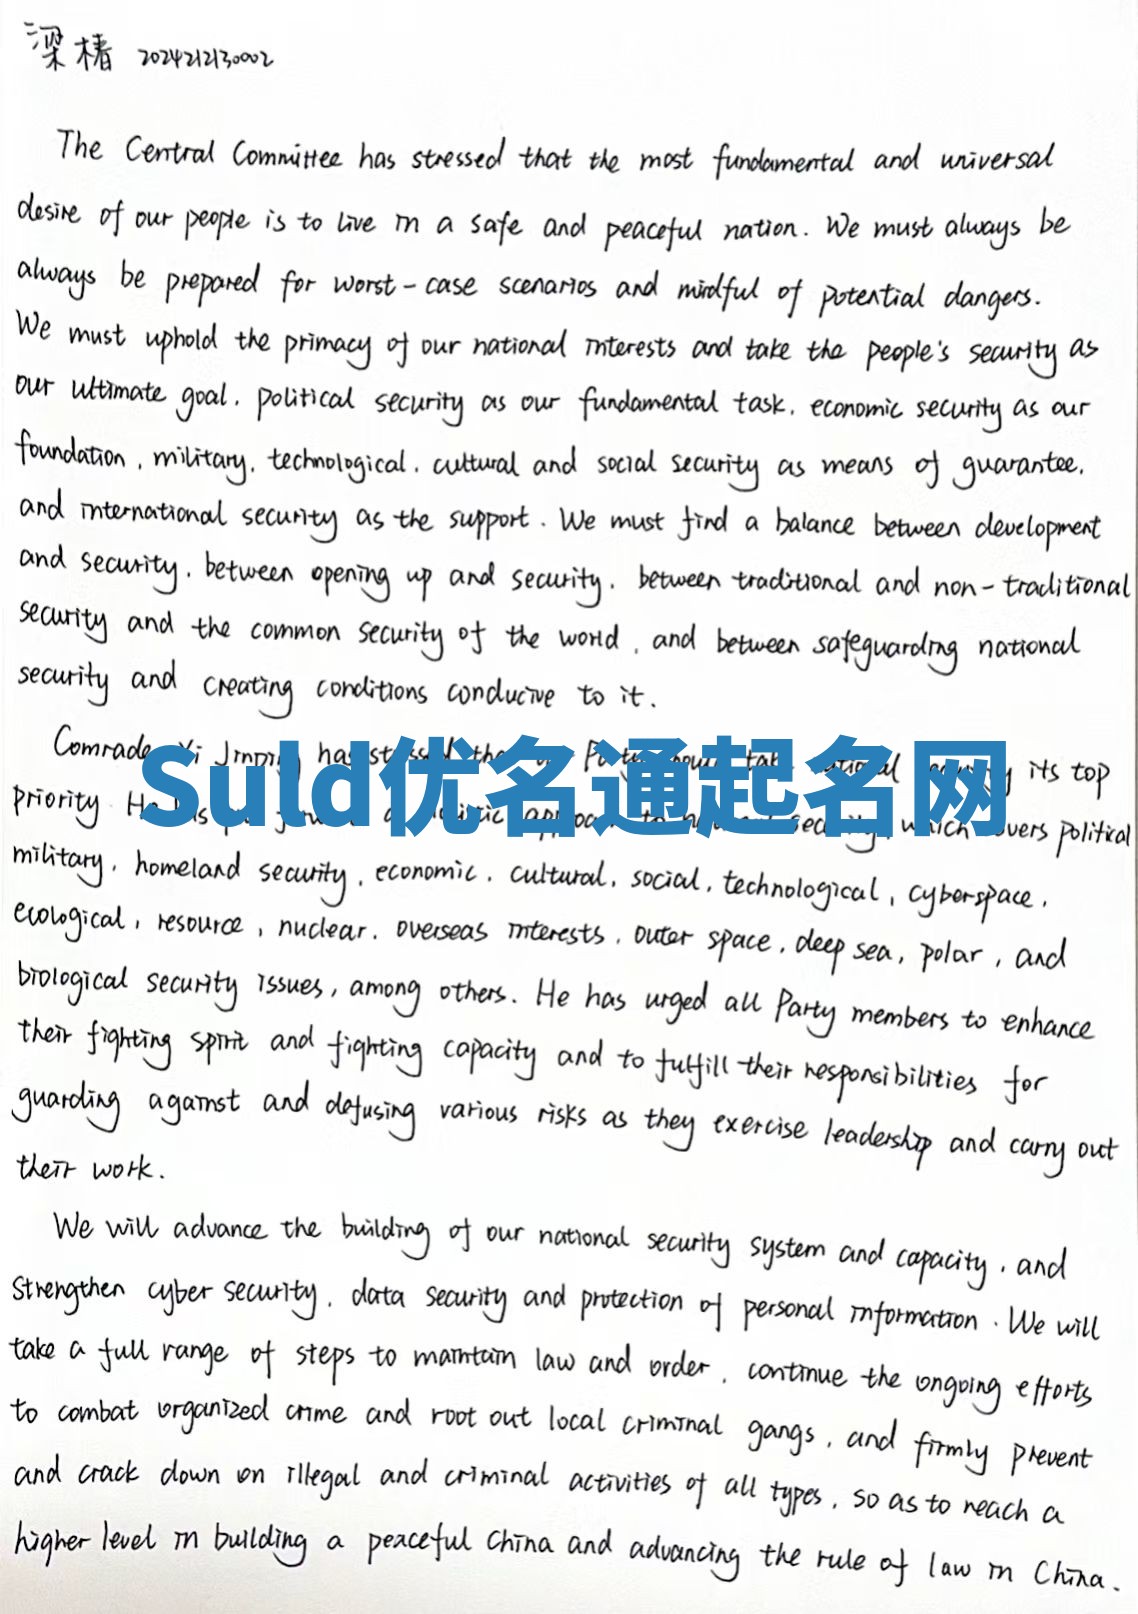 梁椿 2024212130002
The Central Committee has stressed that the most fundamental and universal
desire of our people is to live in a safe and peaceful nation. We must always be
always be prepared for worst-case scenarios and mindful of potential dangers.
We must uphold the primacy of our national interests and take the people's security as
our ultimate goal, political security as our fundamental task, economic security as our
foundation, military, technological, cultural and social security as means of guarantee,
and international security as the support. We must find a balance between development
and security, between opening up and security, between traditional and non-traditional
security and the common security of the world, and between safeguarding national
security and creating conditions conducive to it.
Comrade Xi Jinping has stressed its top
Suld优名通起名网
priority. He which covers political
military, homeland security, economic, cultural, social, technological, cyberspace,
ecological, resource, nuclear, overseas interests, outer space, deep sea, polar, and
biological security issues, among others. He has urged all Party members to enhance
their fighting spirit and fighting capacity and to fulfill their responsibilities for
guarding against and defusing various risks as they exercise leadership and carry out
their work.
We will advance the building of our national security system and capacity, and
strengthen cyber security, data security and protection of personal information. We will
take a full range of steps to maintain law and order, continue the ongoing efforts
to combat organized crime and root out local criminal gangs, and firmly prevent
and crack down on illegal and criminal activities of all types, so as to reach a
higher level in building a peaceful China and advancing the rule of law in China.